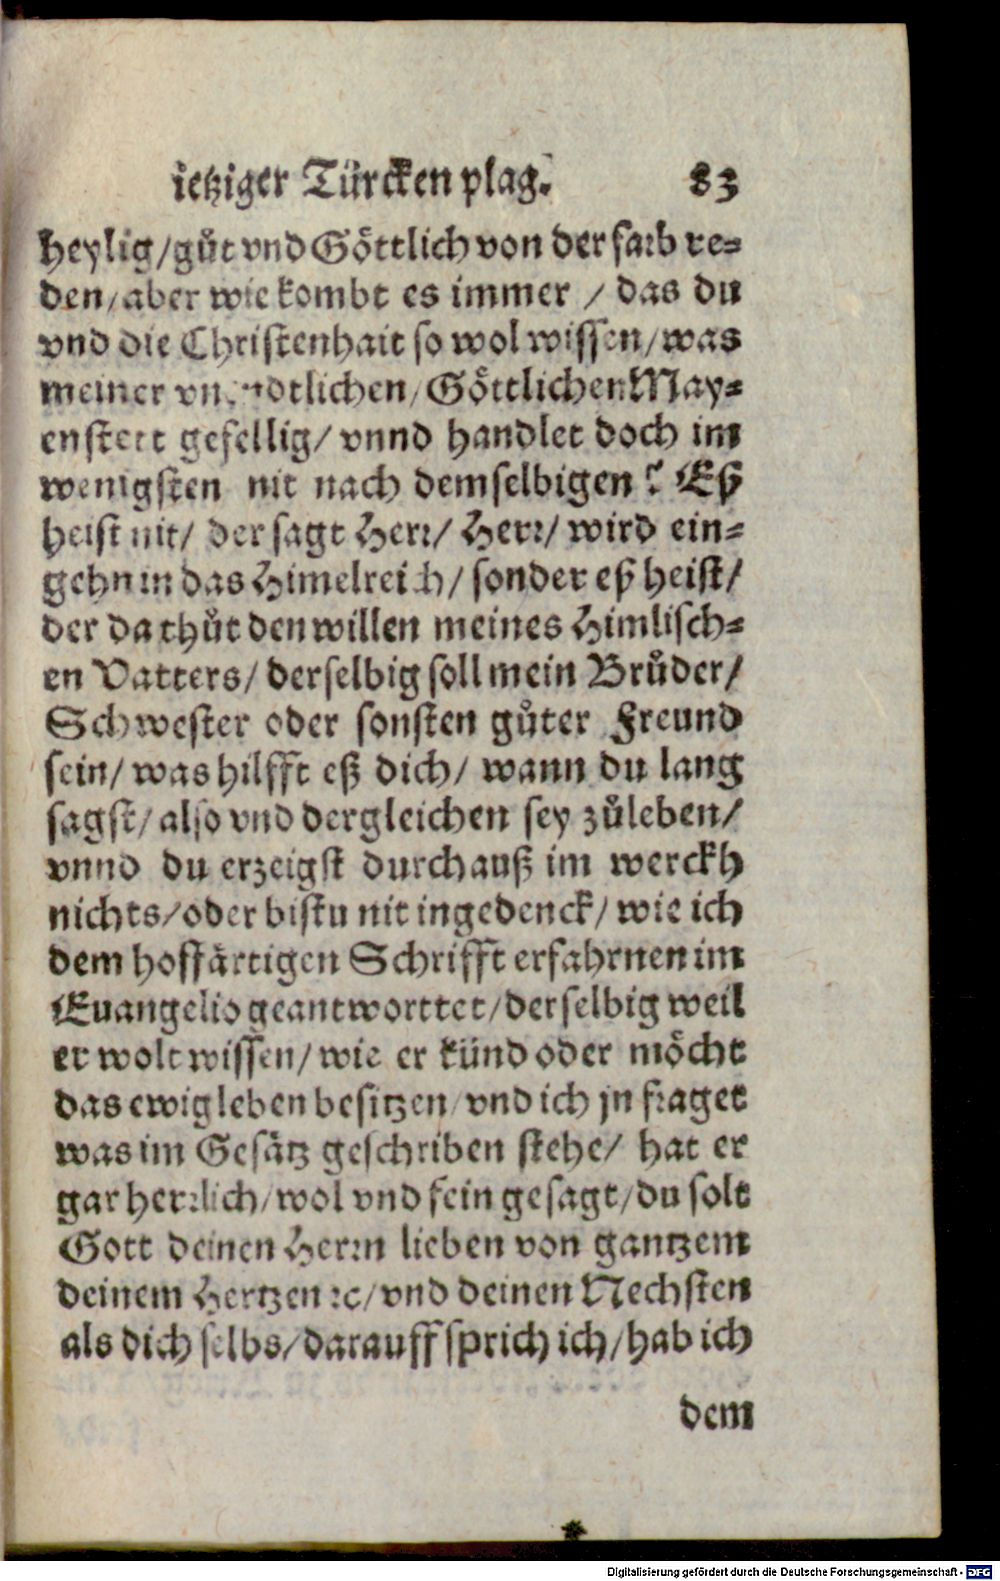 ietziger Türcken plag. 83
heylig/gůt vnd Göttlich von der sach re-
den/aber wie kombt es immer / das du
vnd die Christenhait so wol wissen/was
meiner Göttlichen May-
enstett gefellig/ vnnd handlet doch im
wenigsten nit nach demselbigen? Eß
heist nit/ der sagt Herr/ Herr/ wird ein-
gehn in das Himelreich/ sonder eß heist/
der da thůt den willen meines Himlisch-
en Vatters/ derselbig soll mein Brůder/
Schwester oder sonsten gůter Freund
sein/ was hilfft eß dich/ wann du lang
sagst/ also vnd dergleichen sey zůleben/
vnnd du erzeigst durchauß im werckh
nichts/oder bistu nit ingedenck/ wie ich
dem hoffärtigen Schrifft erfahrnen im
Euangelio geantworttet/derselbig weil
er wolt wissen/wie er künd oder möcht
das ewig leben besitzen/vnd ich jn fraget
was im Gesätz geschriben stehe/ hat er
gar herrlich/wol vnd fein gesagt/du solt
Gott deinen Herrn lieben von gantzem
deinem Hertzen ꝛc/vnd deinen Nechsten
als dich selbs/darauff sprich ich/hab ich
dem
Digitalisierung gefördert durch die Deutsche Forschungsgemeinschaft - DFG